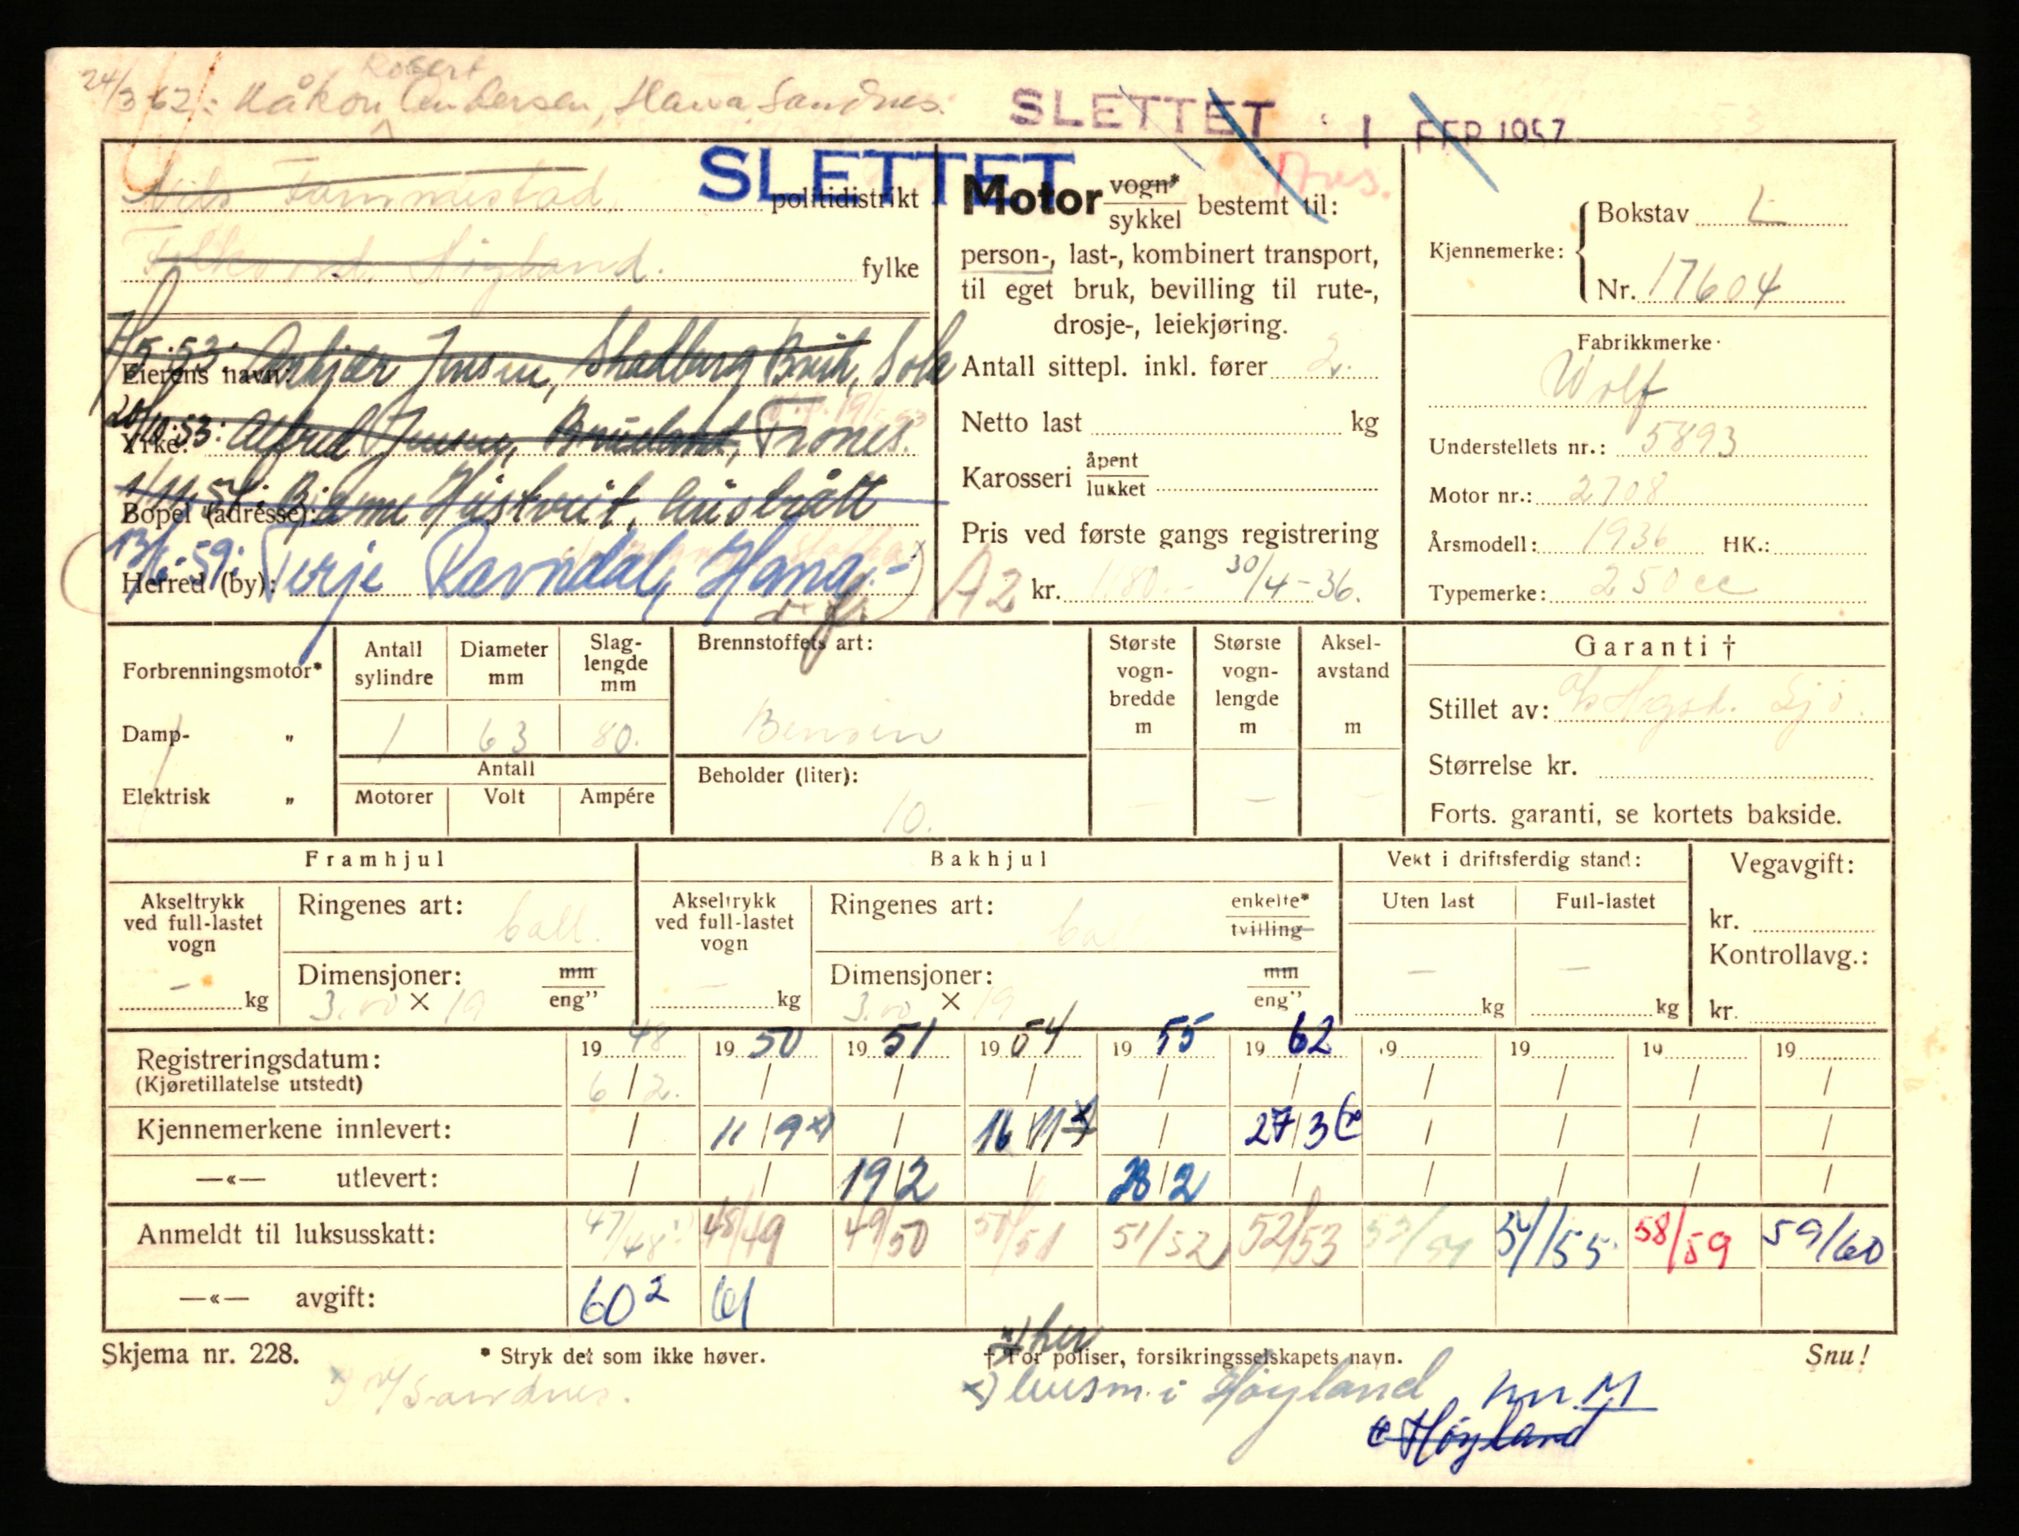 24/3-62: Håkon Robert Andersen, Hana Sandnes.
SLETTET 1 FEB 1957
SLETTET
Nils politidistrikt
Høyland. fylke
5.53: Jensen, Sola
Eierens navn:
53: Alfred Jensen, Trones.
Yrke:
1/11.54: Bjarne Hustveit, Austrått
Bopel (adresse):
59: Terje Ravndal, Hana
Herred (by):
Motor vogn* sykkel bestemt til:
person-, last-, kombinert transport,
til eget bruk, bevilling til rute-,
drosje-, leiekjøring.
Antall sittepl. inkl. fører 2.
Netto last kg
Karosseri åpent lukket
Pris ved første gangs registrering
A2 kr. 1180.- 30/4-36.
Kjennemerke: Bokstav L
Nr. 17604
Fabrikkmerke
Wolf
Understellets nr.: 5893
Motor nr.: 2708
Årsmodell: 1936 HK.:
Typemerke: 250 cc
Forbrenningsmotor*
Damp- „
Elektrisk „
Antall sylindre 1
Diameter mm 63
Slaglengde mm 80.
Antall
Motorer Volt Ampére
Brennstoffets art:
Bensin
Beholder (liter):
10.
Største vogn-bredde m -
Største vogn-lengde m -
Aksel-avstand m -
Garanti †
Stillet av:
Størrelse kr.
Forts. garanti, se kortets bakside.
Framhjul
Akseltrykk ved full-lastet vogn - kg
Ringenes art: ball.
Dimensjoner: mm eng"
3.00 × 19
Bakhjul
Akseltrykk ved full-lastet vogn - kg
Ringenes art: ball enkelte* tvilling
Dimensjoner: mm eng"
3.00 × 19
Vekt i driftsferdig stand:
Uten last Full-lastet
- kg - kg
Vegavgift:
kr.
Kontrollavg.:
kr.
Registreringsdatum: 1948 1950 1951 1954 1955 1962 19 19 19 19
(Kjøretillatelse utstedt) 6/2. / / / / / / / / /
Kjennemerkene innlevert: / 11/9 x) / 16/11 / 27/3 / / / /
—«— utlevert: / / 19/2 / 28/2 / / / / /
Anmeldt til luksusskatt: 47/48 48/49 49/50 50/51 51/52 52/53 53/54 54/55 58/59 59/60
—«— avgift: 60 2 61
Skjema nr. 228.
* Stryk det som ikke høver.
† For poliser, forsikringsselskapets navn.
Snu!
her
Sandnes.
x) lensm. i Høyland
Høyland